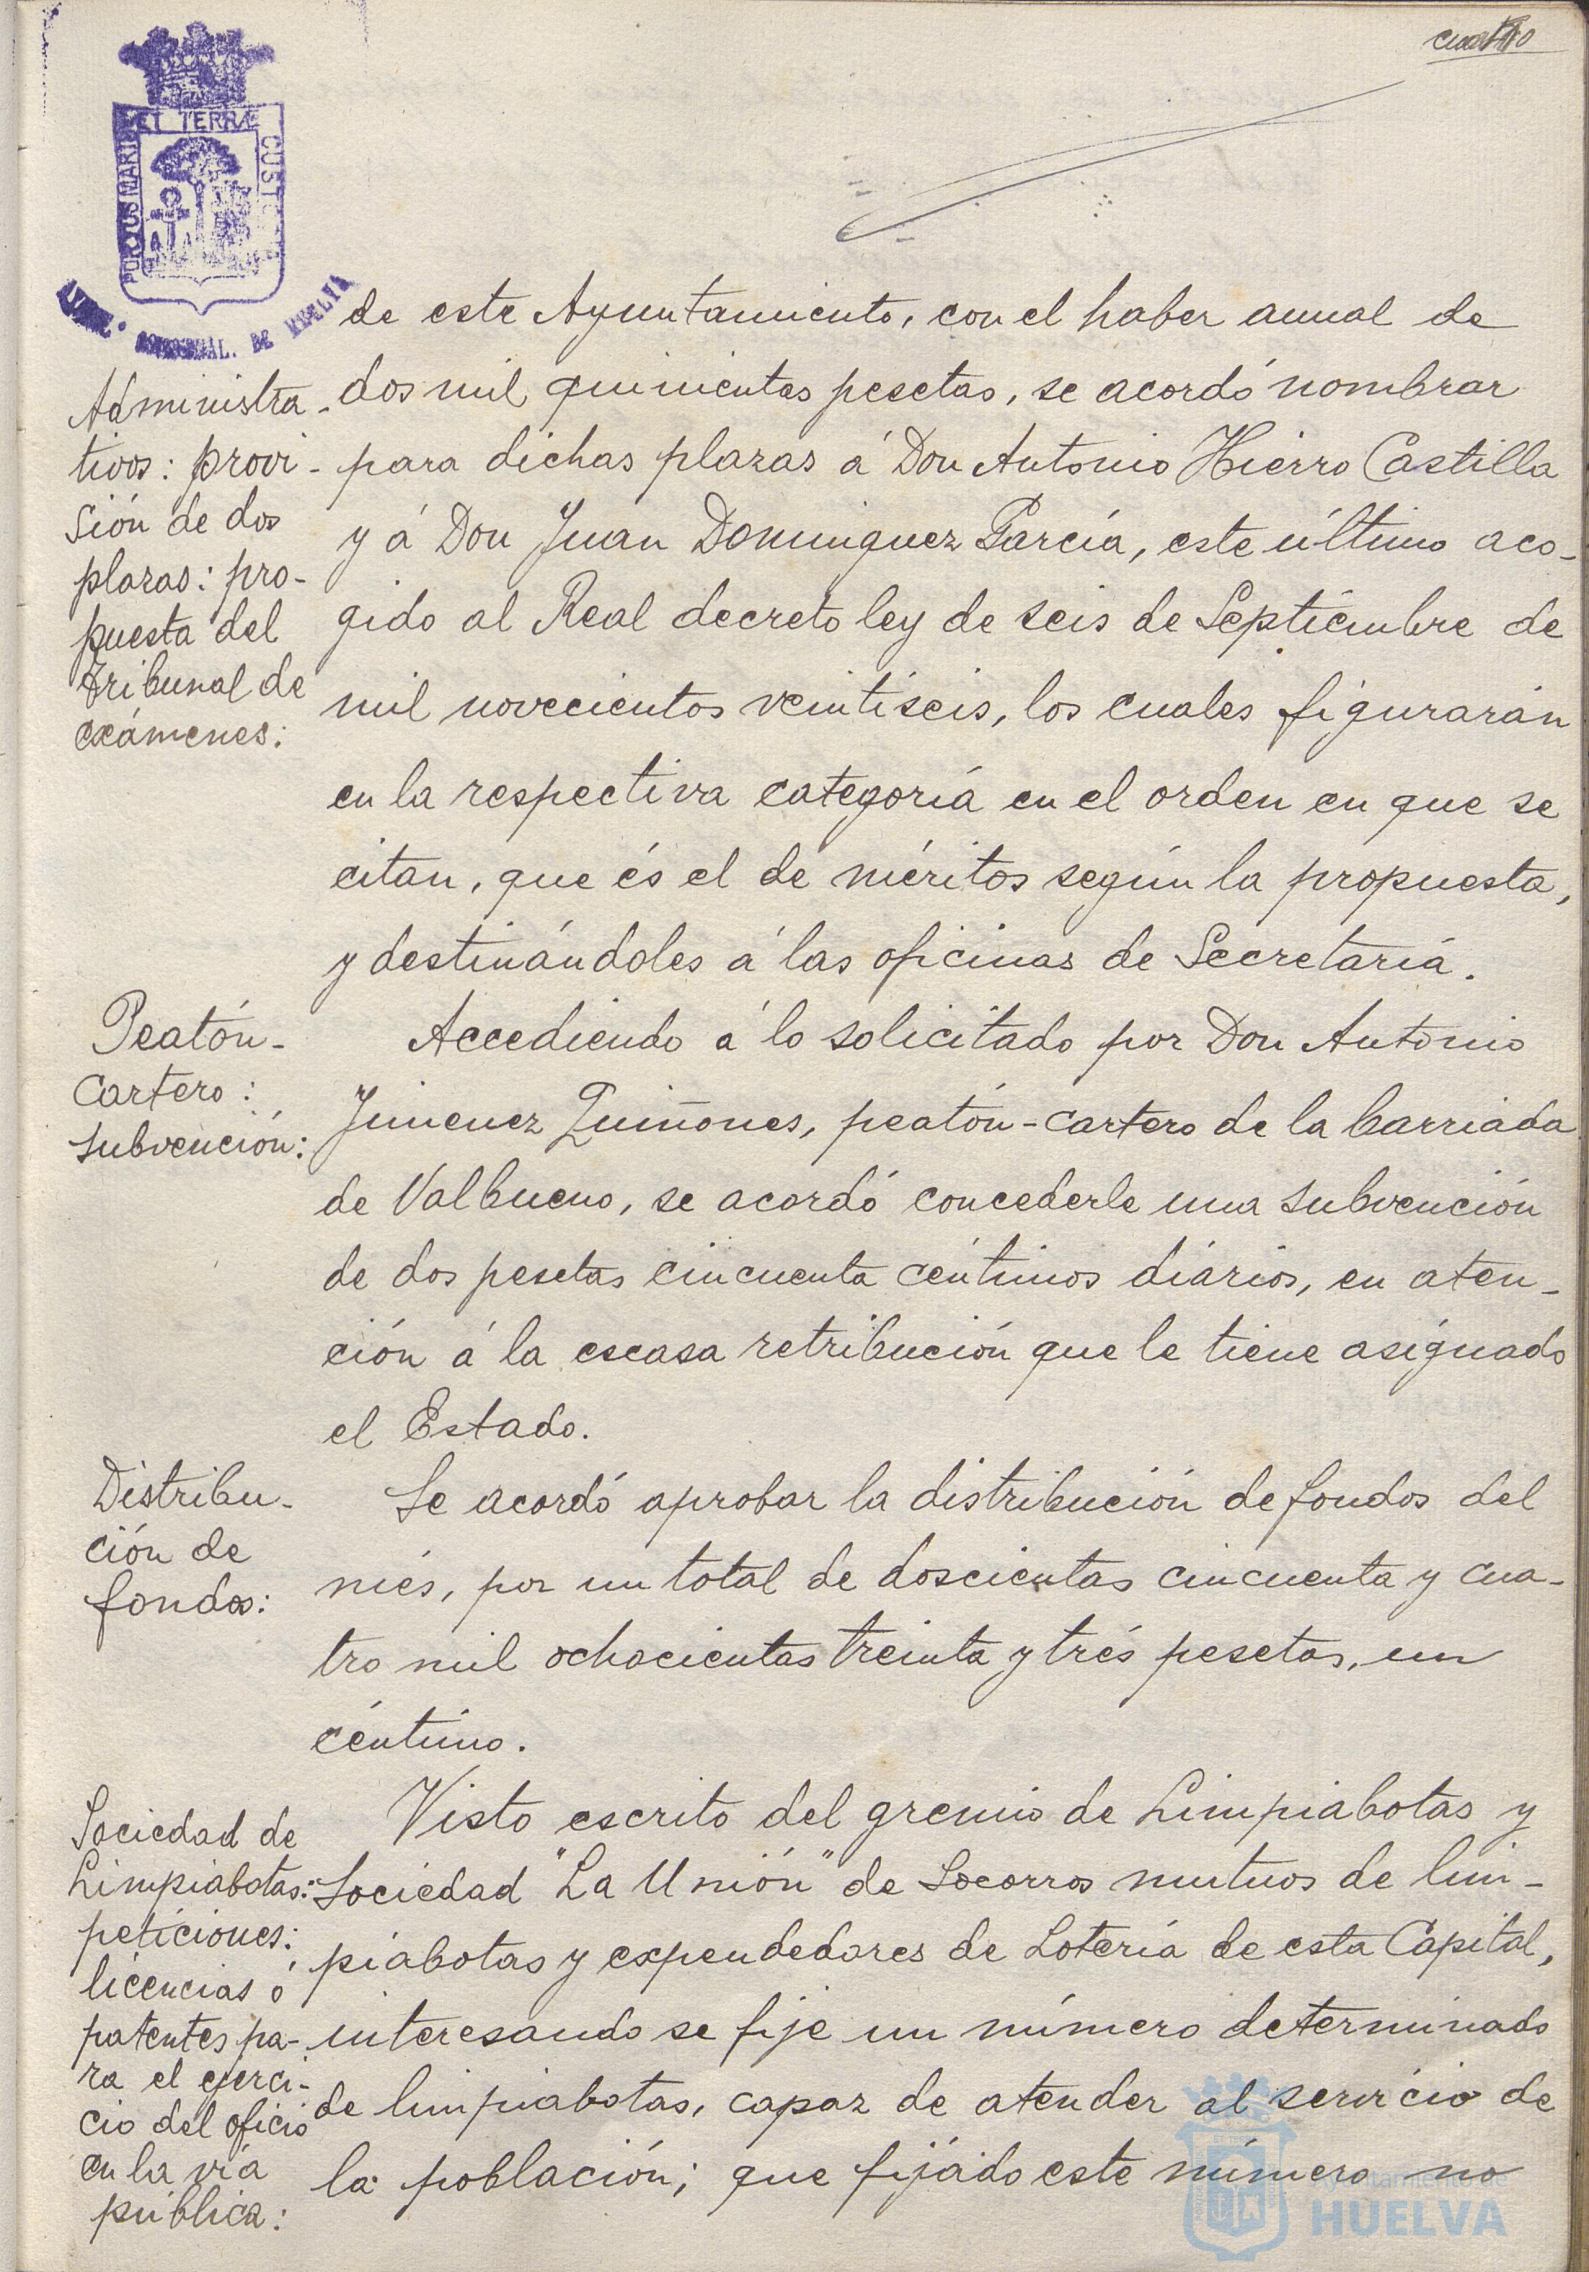 cuatro
PORTUS MARIS ET TERRÆ CUSTO
DE HUELVA
de este Ayuntamiento, con el haber anual de
Administra-
dos mil quinientas pesetas, se acordó nombrar
tivos: provi-
para dichas plazas á Don Antonio Hierro Castilla
sión de dos
y á Don Juan Dominguez García, este último aco-
plazas: pro-
puesta del
gido al Real decreto ley de seis de Septiembre de
tribunal de
mil novecientos veintiseis, los cuales figurarán
exámenes:
en la respectiva categoría en el orden en que se
citan, que és el de méritos según la propuesta,
y destinándoles á las oficinas de Secretaría.
Peatón-
Accediendo á lo solicitado por Don Antonio
Cartero:
Jimenez Quiñones, peatón-cartero de la barriada
subvención:
de Valbueno, se acordó concederle una subvención
de dos pesetas cincuenta céntimos diários, en aten-
ción á la escasa retribución que le tiene asignado
el Estado.
Distribu-
Se acordó aprobar la distribución de fondos del
ción de
més, por un total de doscientas cincuenta y cua-
fondos:
tro mil ochocientas treinta y trés pesetas, un
céntimo.
Sociedad de
Visto escrito del gremio de Limpiabotas y
Limpiabotas:
Sociedad "La Unión" de Socorros mutuos de lim-
peticiones:
piabotas y expendedores de Lotería de esta Capital,
licencias ó
patentes pa-
interesando se fije un número determinado
ra el ejerci-
de limpiabotas, capaz de atender al servicio de
cio del oficio
en la vía
la población; que fijádo este número no
pública:
Ayuntamiento de
HUELVA